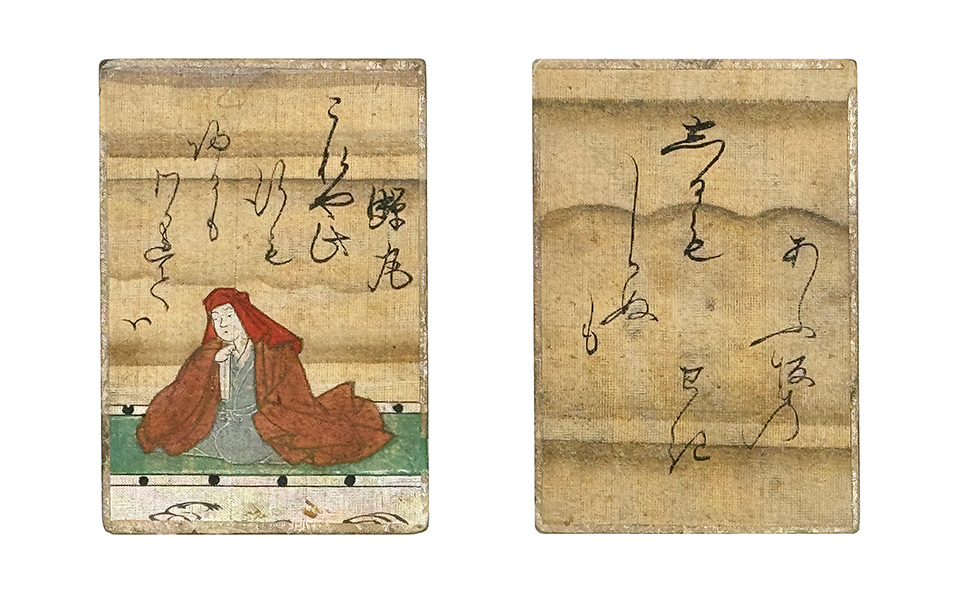 蟬丸
これや此
行も
帰るも
わかれて
ハ
志るも
しらぬ
も
あふ坂の
せき